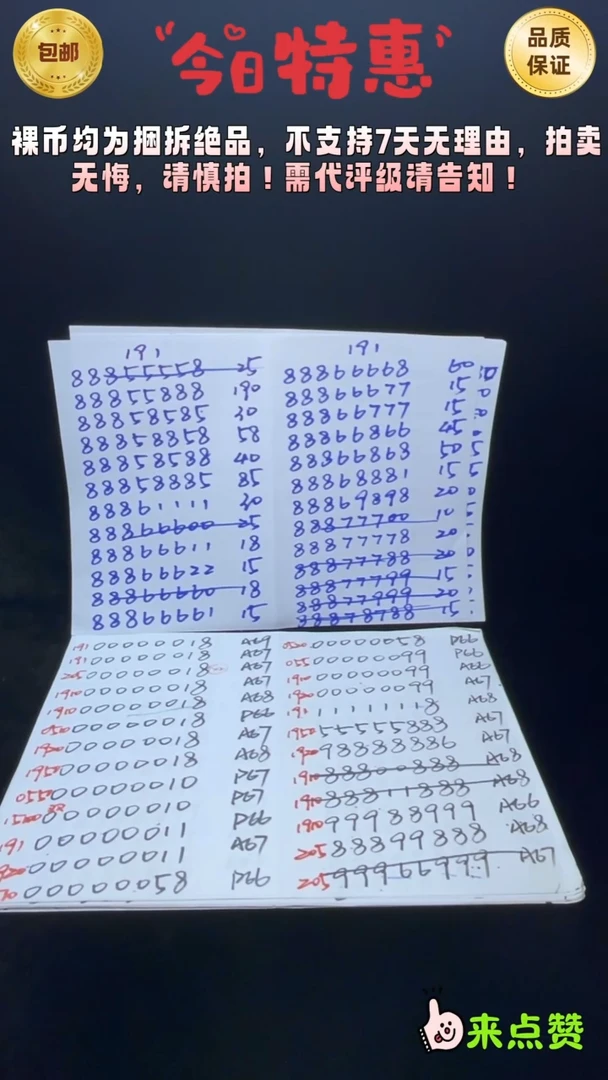 包邮
今日特惠
品质
保证
裸币均为捆拆绝品，不支持7天无理由，拍卖
无悔，请慎拍！需代评级请告知！
191
88855558 25
88855888 190
88858585 30
88858858 58
88858588 40
88858885 85
88861111 30
88866600 25
88866611 18
88866622 15
88866660 18
88866661 15
191
88866668
88866677 15
88866777 15
88866866 45
88866868 50
88868881 15
88869898 20
88877700 10
88877778 20
88877788 20
88877799 15
88877999 20
88878788 15
191 00000018 A69
191 00000018 A67
205 00000018 A67
1910 00000018 A67
1910 00000018 A68
050 00000018 P66
1900 00000018 A67
1950 00000018 A68
055 00000010 P67
00000010 P67
191 00000011 P66
00000011 A67
00000058 P66
00000058 P66
055 00000099 P66
1910 00000099 A66
1900 00000099 A67
191 11111118 A68
1950 55555888 A67
1900 98888886 A67
1910 88800888 A68
1910 88811888 A68
1910 99988999 A66
205 88899888 A68
205 99966999 A67
来点赞